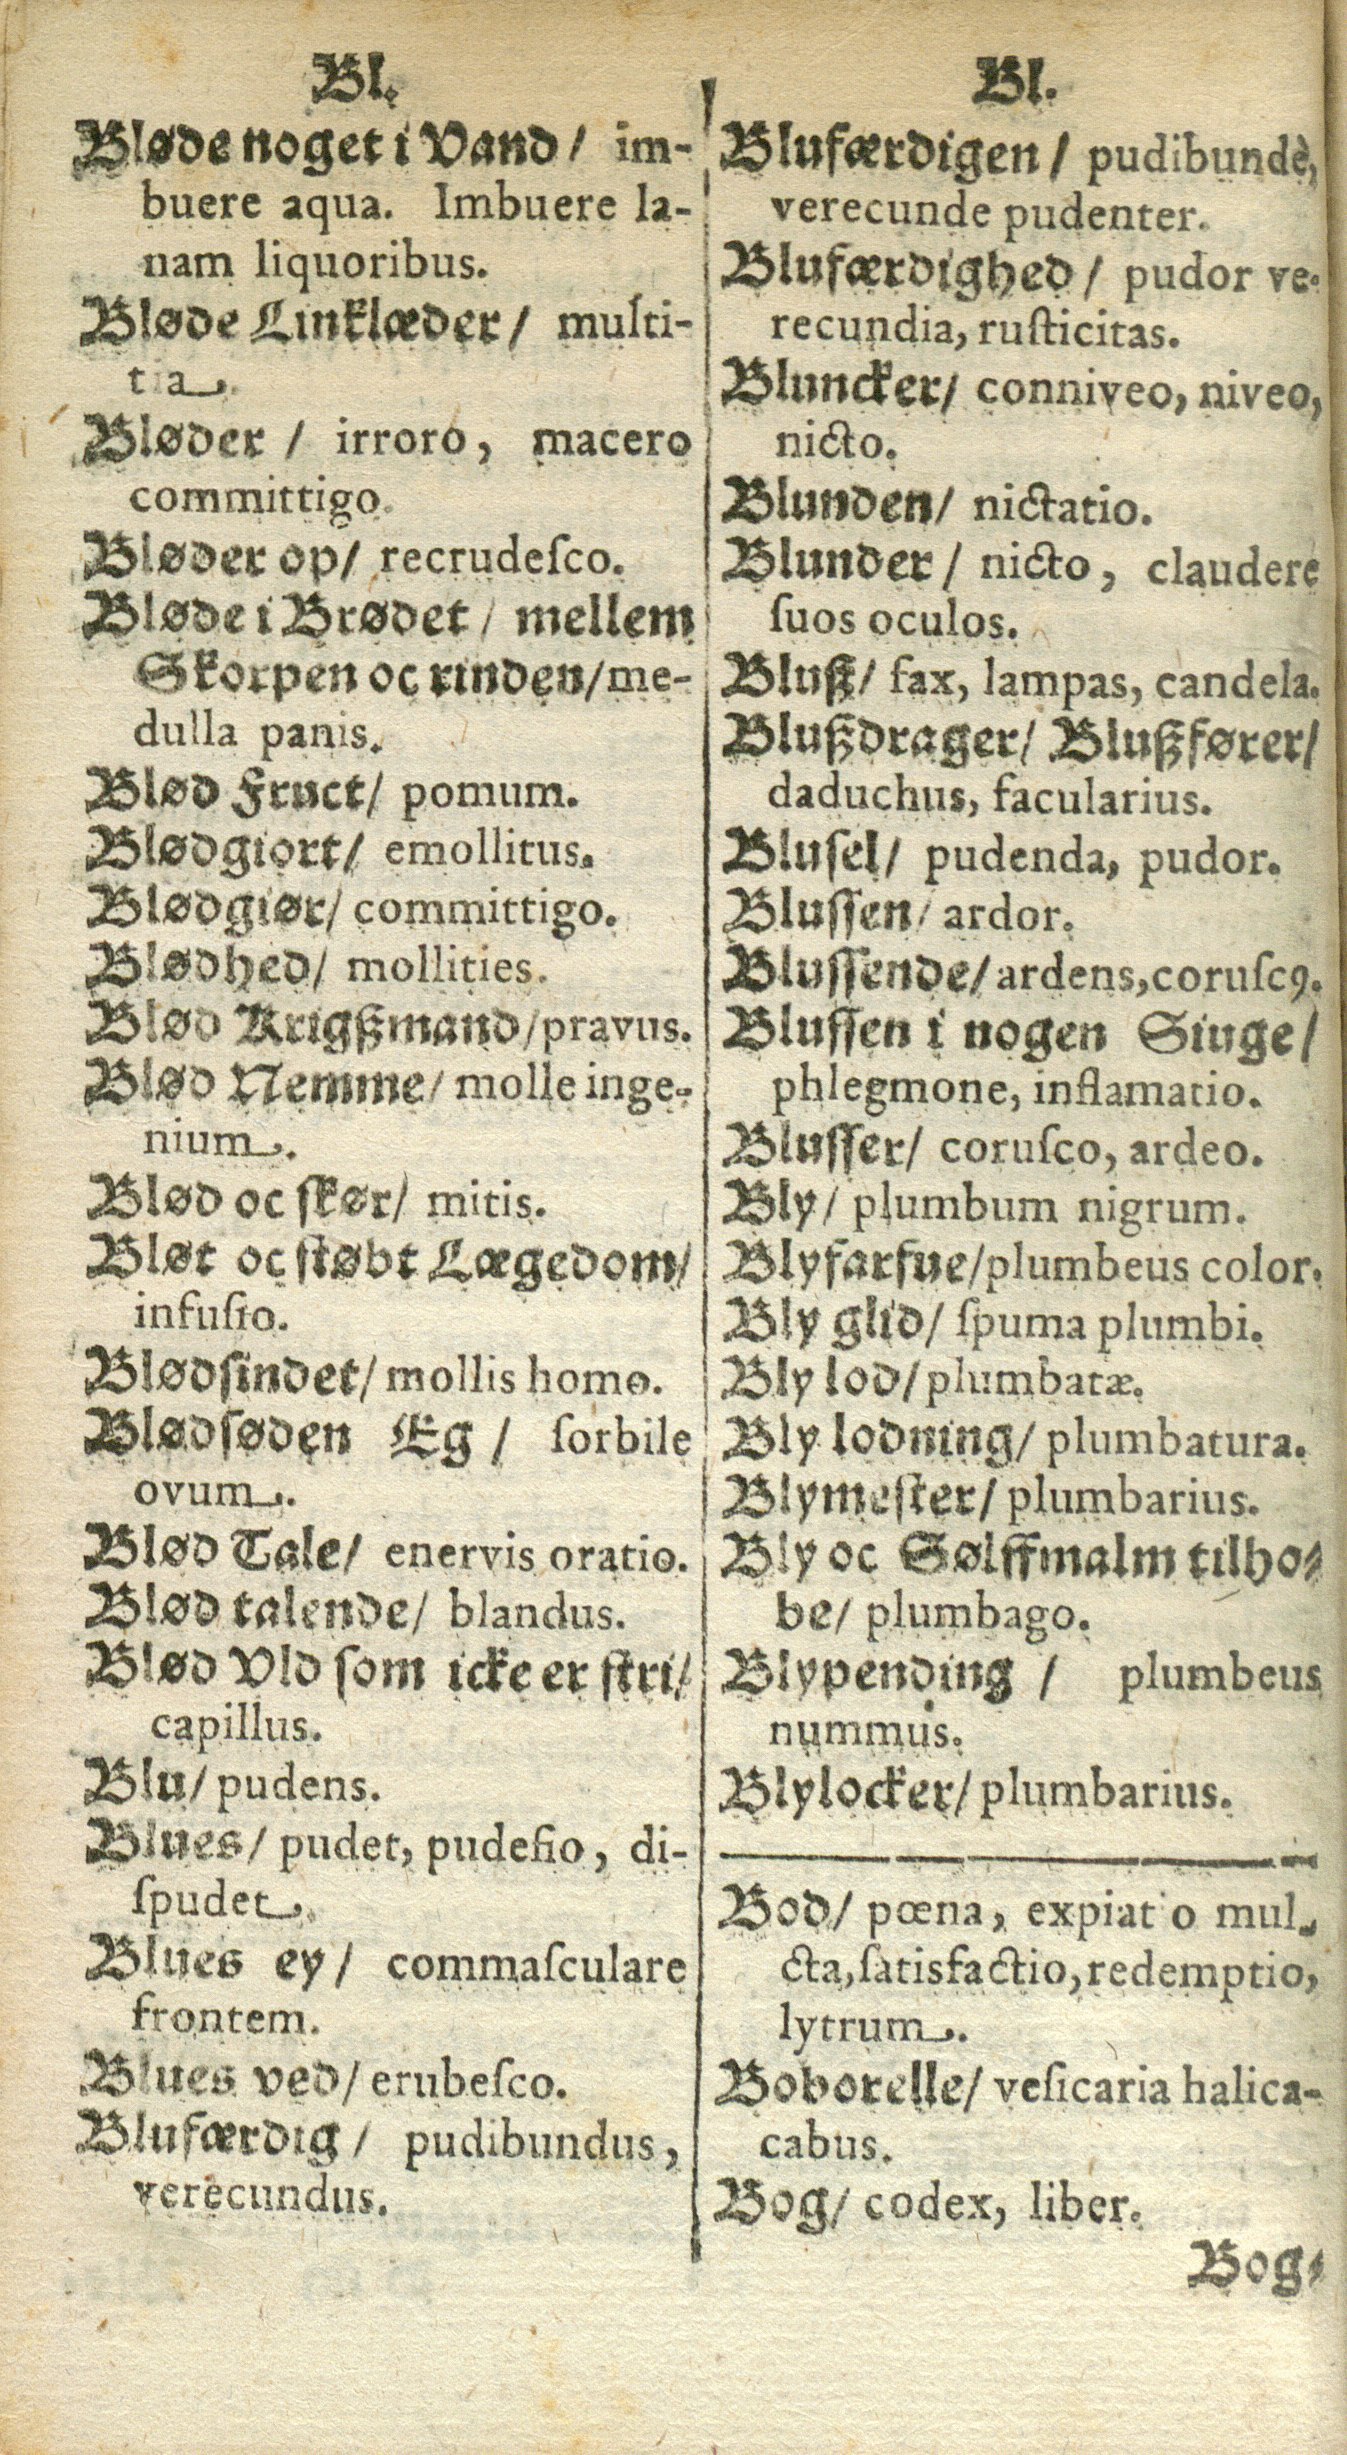 Bl.
Bløde noget i Vand/ im-
buere aqua. Imbuere la-
nam liquoribus.
Bløde Linklæder/ muſti-
tia.
Bløder / irroro, macero
committigo.
Bløder op/ recrudeſco.
Bløde i Brødet / mellem
Skorpen oc rinden/ me-
dulla panis.
Blød Fruct/ pomum.
Blødgiort/ emollitus.
Blødgiør/ committigo.
Blødhed/ mollities.
Blød Krigßmand/ pravus.
Blød Nemme/ molle inge-
nium.
Blød oc ſkør/ mitis.
Bløt oc ſtøbt Lægedom/
infuſio.
Blødſindet/ mollis homo.
Blødſøden Eg / ſorbile
ovum.
Blød Tale/ enervis oratio.
Blød talende/ blandus.
Blød Vld ſom icke er ſtri/
capillus.
Blu/ pudens.
Blues/ pudet, pudefio, di-
ſpudet.
Blues ey/ commaſculare
frontem.
Blues ved/ erubeſco.
Blufærdig / pudibundus,
verecundus.
Bl.
Blufærdigen / pudibundè,
verecunde pudenter.
Blufærdighed / pudor ve-
recundia, ruſticitas.
Bluncker/ conniveo, niveo,
nicto.
Blunden/ nictatio.
Blunder / nicto, claudere
ſuos oculos.
Bluß/ fax, lampas, candela.
Blußdrager/ Blußfører/
daduchus, facularius.
Bluſel/ pudenda, pudor.
Bluſſen/ ardor.
Bluſſende/ ardens, coruſcꝰ.
Bluſſen i nogen Siuge/
phlegmone, inflamatio.
Bluſſer/ coruſco, ardeo.
Bly/ plumbum nigrum.
Blyfarfue/ plumbeus color.
Bly glid/ ſpuma plumbi.
Bly lod/ plumbatæ.
Bly lodning/ plumbatura.
Blymeſter/ plumbarius.
Bly oc Sølffmalm tilho-
be/ plumbago.
Blypending / plumbeus
nummus.
Blylocker/ plumbarius.
Bod/ pœna, expiat o mul-
cta, ſatisfactio, redemptio,
lytrum.
Boborelle/ veſicaria halica-
cabus.
Bog/ codex, liber.
Bog-